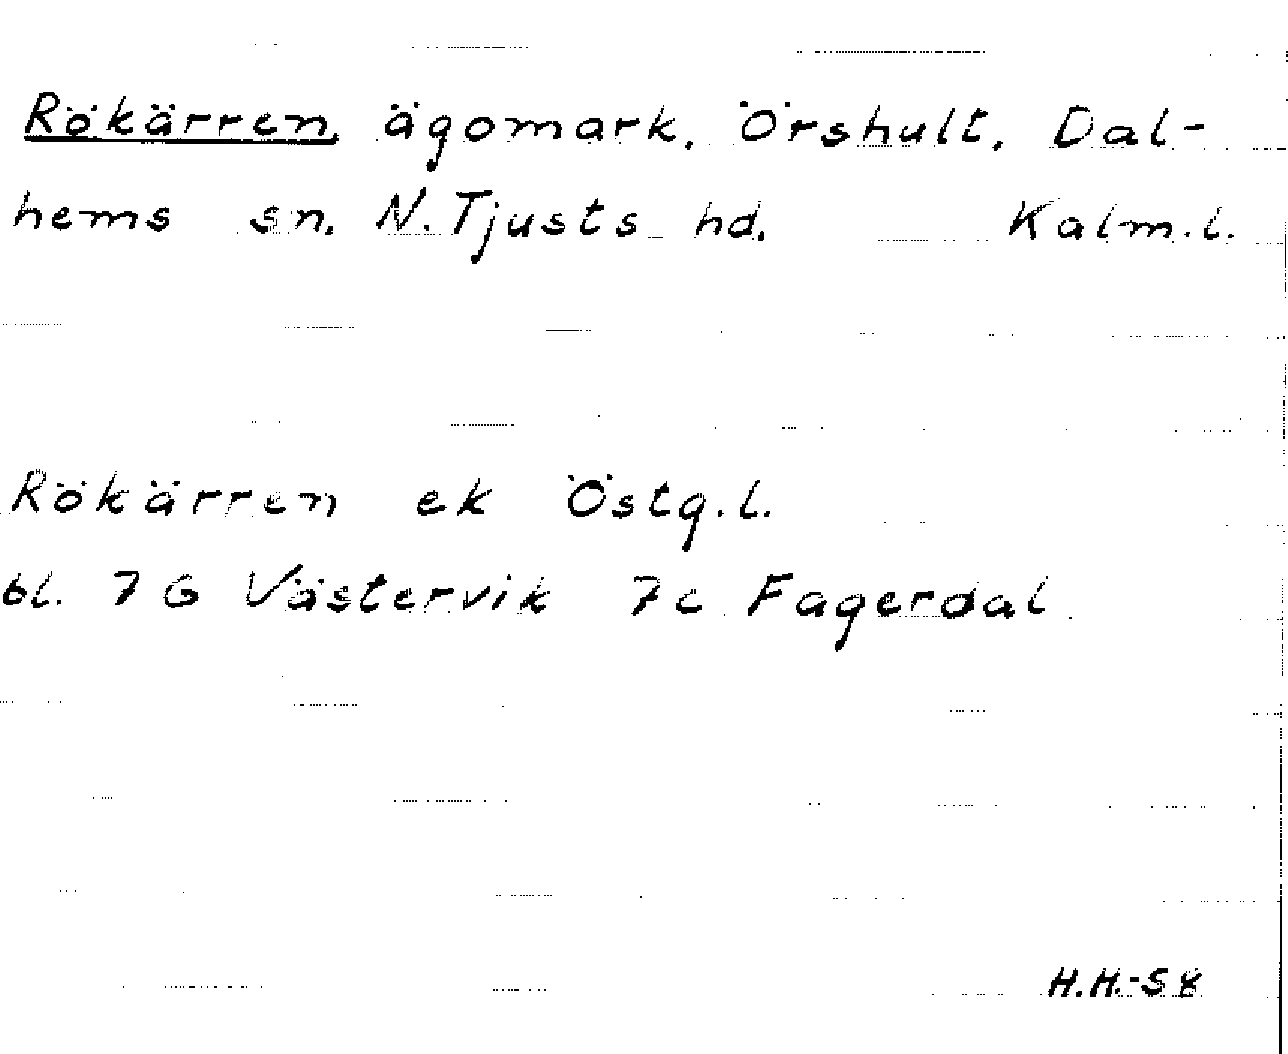 Rökärren, ägomark, Örshult, Dal-
hems sn. N. Tjusts hd. Kalm. l.
Rökärren ek Östg. l.
bl. 7 G Västervik 7c Fagerdal
H.H.-58